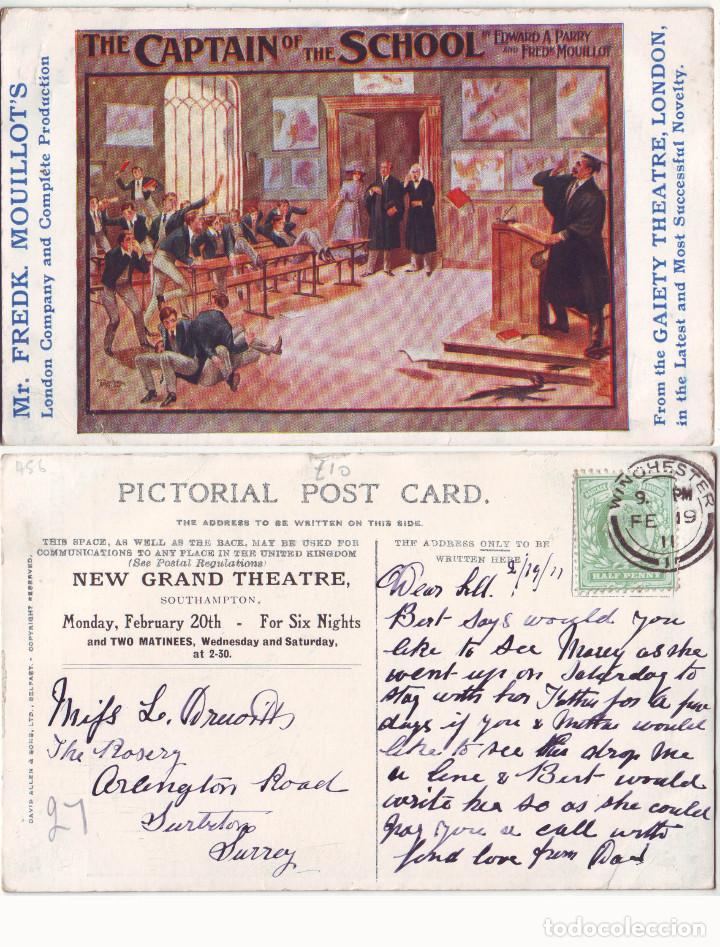 THE CAPTAIN OF THE SCHOOL BY EDWARD A PARRY AND FREDK MOUILLOT
Mr. FREDK. MOUILLOT'S
London Company and Complete Production
From the GAIETY THEATRE, LONDON,
in the Latest and Most Successful Novelty.
456
£10
PICTORIAL POST CARD.
THE ADDRESS TO BE WRITTEN ON THIS SIDE.
THIS SPACE, AS WELL AS THE BACK, MAY BE USED FOR
COMMUNICATIONS TO ANY PLACE IN THE UNITED KINGDOM
(See Postal Regulations)
NEW GRAND THEATRE,
SOUTHAMPTON.
Monday, February 20th - For Six Nights
and TWO MATINEES, Wednesday and Saturday,
at 2-30.
DAVID ALLEN & SONS, LTD., BELFAST. - COPYRIGHT RESERVED.
Miss L.
The Rosery
Arlington Road
Surbiton
Surrey
27
THE ADDRESS ONLY TO BE
WRITTEN HERE
HALF PENNY
WINCHESTER
9. PM
FE 19
11
2/19/11
Dear
Bert says would you
like to see as she
went up on Saturday to
stay with her for a few
days if you & would
like to see drop me
a line & Bert would
write her so as she could
pay you a call with
fond love from Dad
todocoleccion